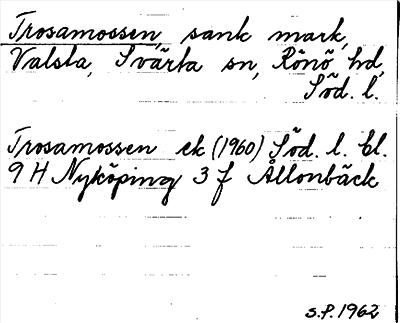 Trosamossen, sank mark,
Valsta, Svärta sn, Rönö hd,
Söd. l.
Trosamossen ek (1960) Söd. l. bl.
9 H Nyköping 3 f Ållonbäck
S.P. 1962